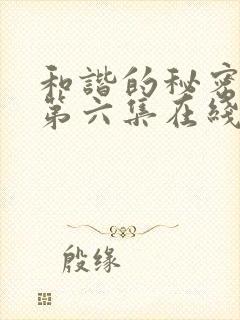 和谐的秘密
第六集在线
殷缘